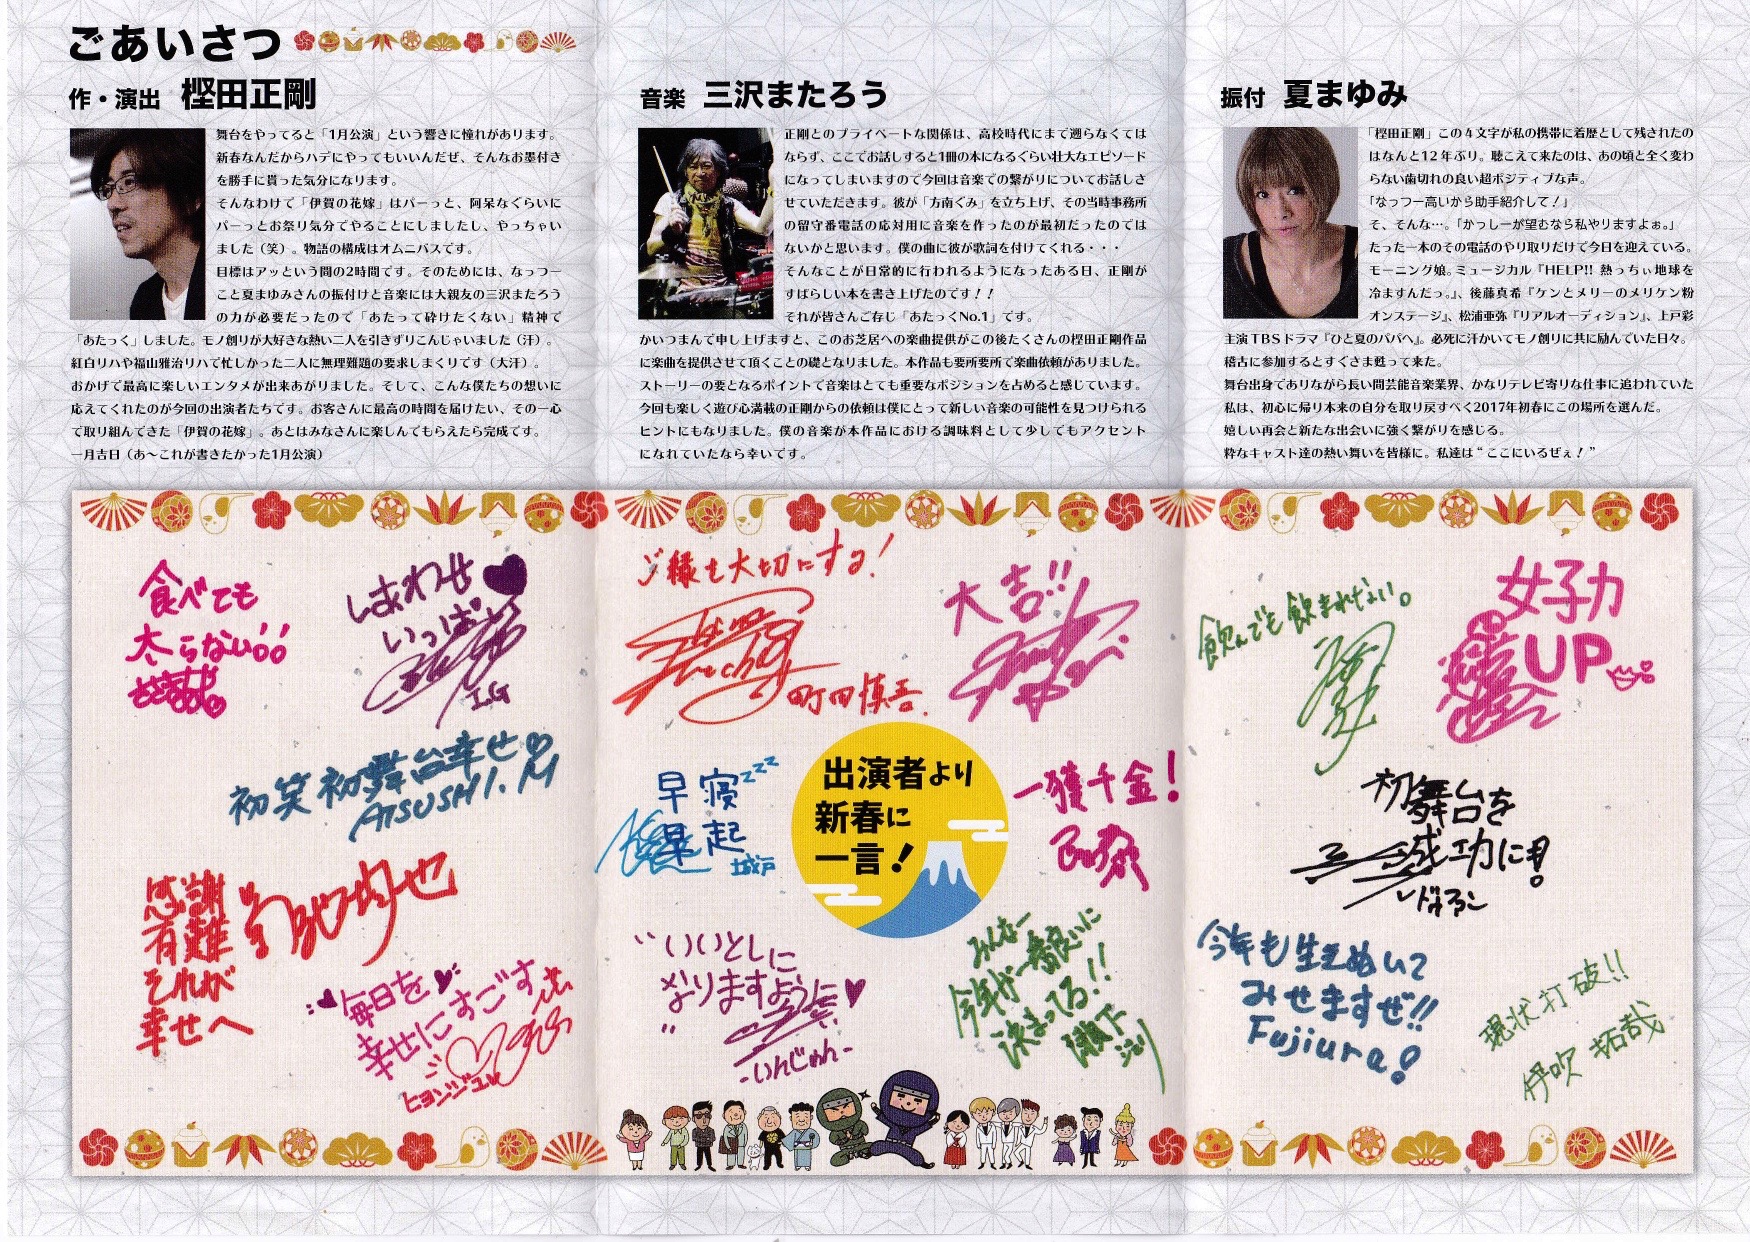 ごあいさつ
作・演出 樫田正剛
舞台をやってると「1月公演」という響きに憧れがあります。
新春なんだからハデにやってもいいんだぜ、そんなお墨付き
を勝手に貰った気分になります。
そんなわけで「伊賀の花嫁」はパーっと、阿呆なぐらいに
パーっとお祭り気分でやることにしましたし、やっちゃい
ました（笑）。物語の構成はオムニバスです。
目標はアッという間の2時間です。そのためには、なっつー
こと夏まゆみさんの振付けと音楽には大親友の三沢またろう
の力が必要だったので「あたって砕けたくない」精神で
「あたっく」しました。モノ創りが大好きな熱い二人を引きずりこんじゃいました（汗）。
紅白リハや福山雅治リハで忙しかった二人に無理難題の要求しまくりです（大汗）。
おかげで最高に楽しいエンタメが出来あがりました。そして、こんな僕たちの想いに
応えてくれたのが今回の出演者たちです。お客さんに最高の時間を届けたい、その一心
で取り組んできた「伊賀の花嫁」。あとはみなさんに楽しんでもらえたら完成です。
一月吉日（あ〜これが書きたかった1月公演）
音楽 三沢またろう
正剛とのプライベートな関係は、高校時代にまで遡らなくては
ならず、ここでお話しすると1冊の本になるぐらい壮大なエピソード
になってしまいますので今回は音楽での繋がりについてお話しさ
せていただきます。彼が「方南ぐみ」を立ち上げ、その当時事務所
の留守番電話の応対用に音楽を作ったのが最初だったのでは
ないかと思います。僕の曲に彼が歌詞を付けてくれる・・・
そんなことが日常的に行われるようになったある日、正剛が
すばらしい本を書き上げたのです！！
それが皆さんご存じ「あたっくNo.1」です。
かいつまんで申し上げますと、このお芝居への楽曲提供がこの後たくさんの樫田正剛作品
に楽曲を提供させて頂くことの礎となりました。本作品も要所要所で楽曲依頼がありました。
ストーリーの要となるポイントで音楽はとても重要なポジションを占めると感じています。
今回も楽しく遊び心満載の正剛からの依頼は僕にとって新しい音楽の可能性を見つけられる
ヒントにもなりました。僕の音楽が本作品における調味料として少しでもアクセント
になれていたなら幸いです。
振付 夏まゆみ
「樫田正剛」この4文字が私の携帯に着歴として残されたの
はなんと12年ぶり。聴こえて来たのは、あの頃と全く変わ
らない歯切れの良い超ポジティブな声。
「なっつー高いから助手紹介して！」
そ、そんな…。「かっしーが望むなら私やりますよぉ。」
たった一本のその電話のやり取りだけで今日を迎えている。
モーニング娘。ミュージカル『HELP!! 熱っちぃ地球を
冷ますんだっ。』、後藤真希『ケンとメリーのメリケン粉
オンステージ』、松浦亜弥『リアルオーディション』、上戸彩
主演TBSドラマ『ひと夏のパパへ』。必死に汗かいてモノ創りに共に励んでいた日々。
稽古に参加するとすぐさま甦って来た。
舞台出身でありながら長い間芸能音楽業界、かなりテレビ寄りな仕事に追われていた
私は、初心に帰り本来の自分を取り戻すべく2017年初春にこの場所を選んだ。
嬉しい再会と新たな出会いに強く繋がりを感じる。
粋なキャスト達の熱い舞いを皆様に。私達は“ここにいるぜぇ！”
食べても
太らない!!
しあわせ
いっぱい
I.G
初笑初舞台幸せ
ATSUSHI.M
感謝
有難
それが
幸せへ
毎日を
幸せにすごす
ヒョンジュン
ご縁も大切にする!
町田慎吾.
大吉!!
早寝zzz
早起
城戸
出演者より
新春に
一言！
一獲千金!
"いいとしに
なりますように
"
-いんじゅん-
みんなー
今年が一番良いに
決まってる!!
飲んでも飲まれない。
女子力
UP
初舞台を
成功に!
レドゥアン
今年も生きぬいて
みせますぜ!!
Fujiura!
現状打破!!
伊吹拓哉